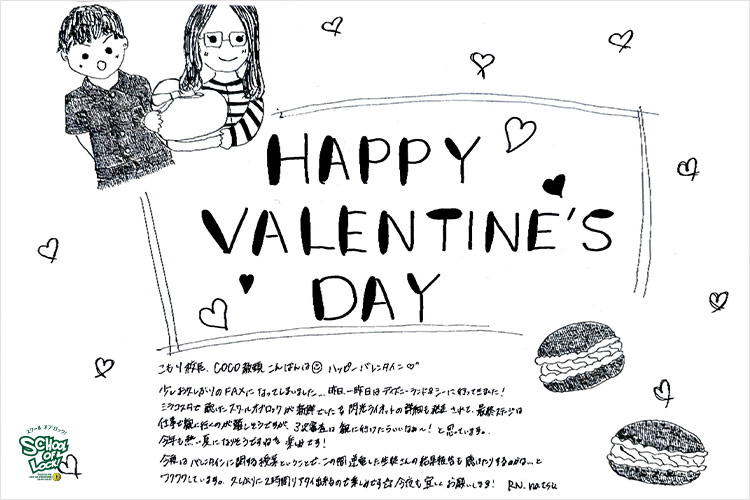 HAPPY
VALENTINE'S
DAY
こもり校長、COCO教頭 こんばんは ハッピーバレンタイン♡
少しお久しぶりのFAXになってしまいました…昨日、一昨日はディズニーランド&シーに行ってきました!
ミラコスタで聴いたスクールオブロックが新鮮でした 閃光ライオットの詳細も発表されて、最終ステージは
仕事で観に行くのが難しそうですが、3次審査は観に行けたらいいなぁ〜!と思っています。
今年も熱い夏になりそうですねを楽しみです!
今夜はバレンタインに関する授業ということで、この間逆電した生徒さんの結果報告も聴けたりするのかな…と
ワクワクしています。久しぶりに2時間リアタイ出来るので楽しみです☆ 今夜も宜しくお願いします! R.N. natsu
スクール オブ ロック!
SCHOOL
OF
LOCK!